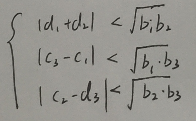 |d₁+d₂| < √b₁b₂
|c₃-c₁| < √b₁·b₃
|c₂-d₃| < √b₂·b₃